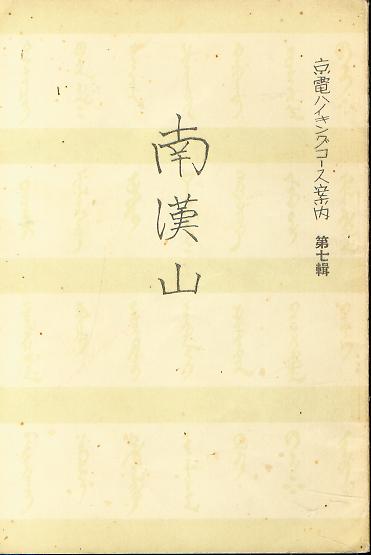 京電ハイキングコース案内 第七輯
南漢山